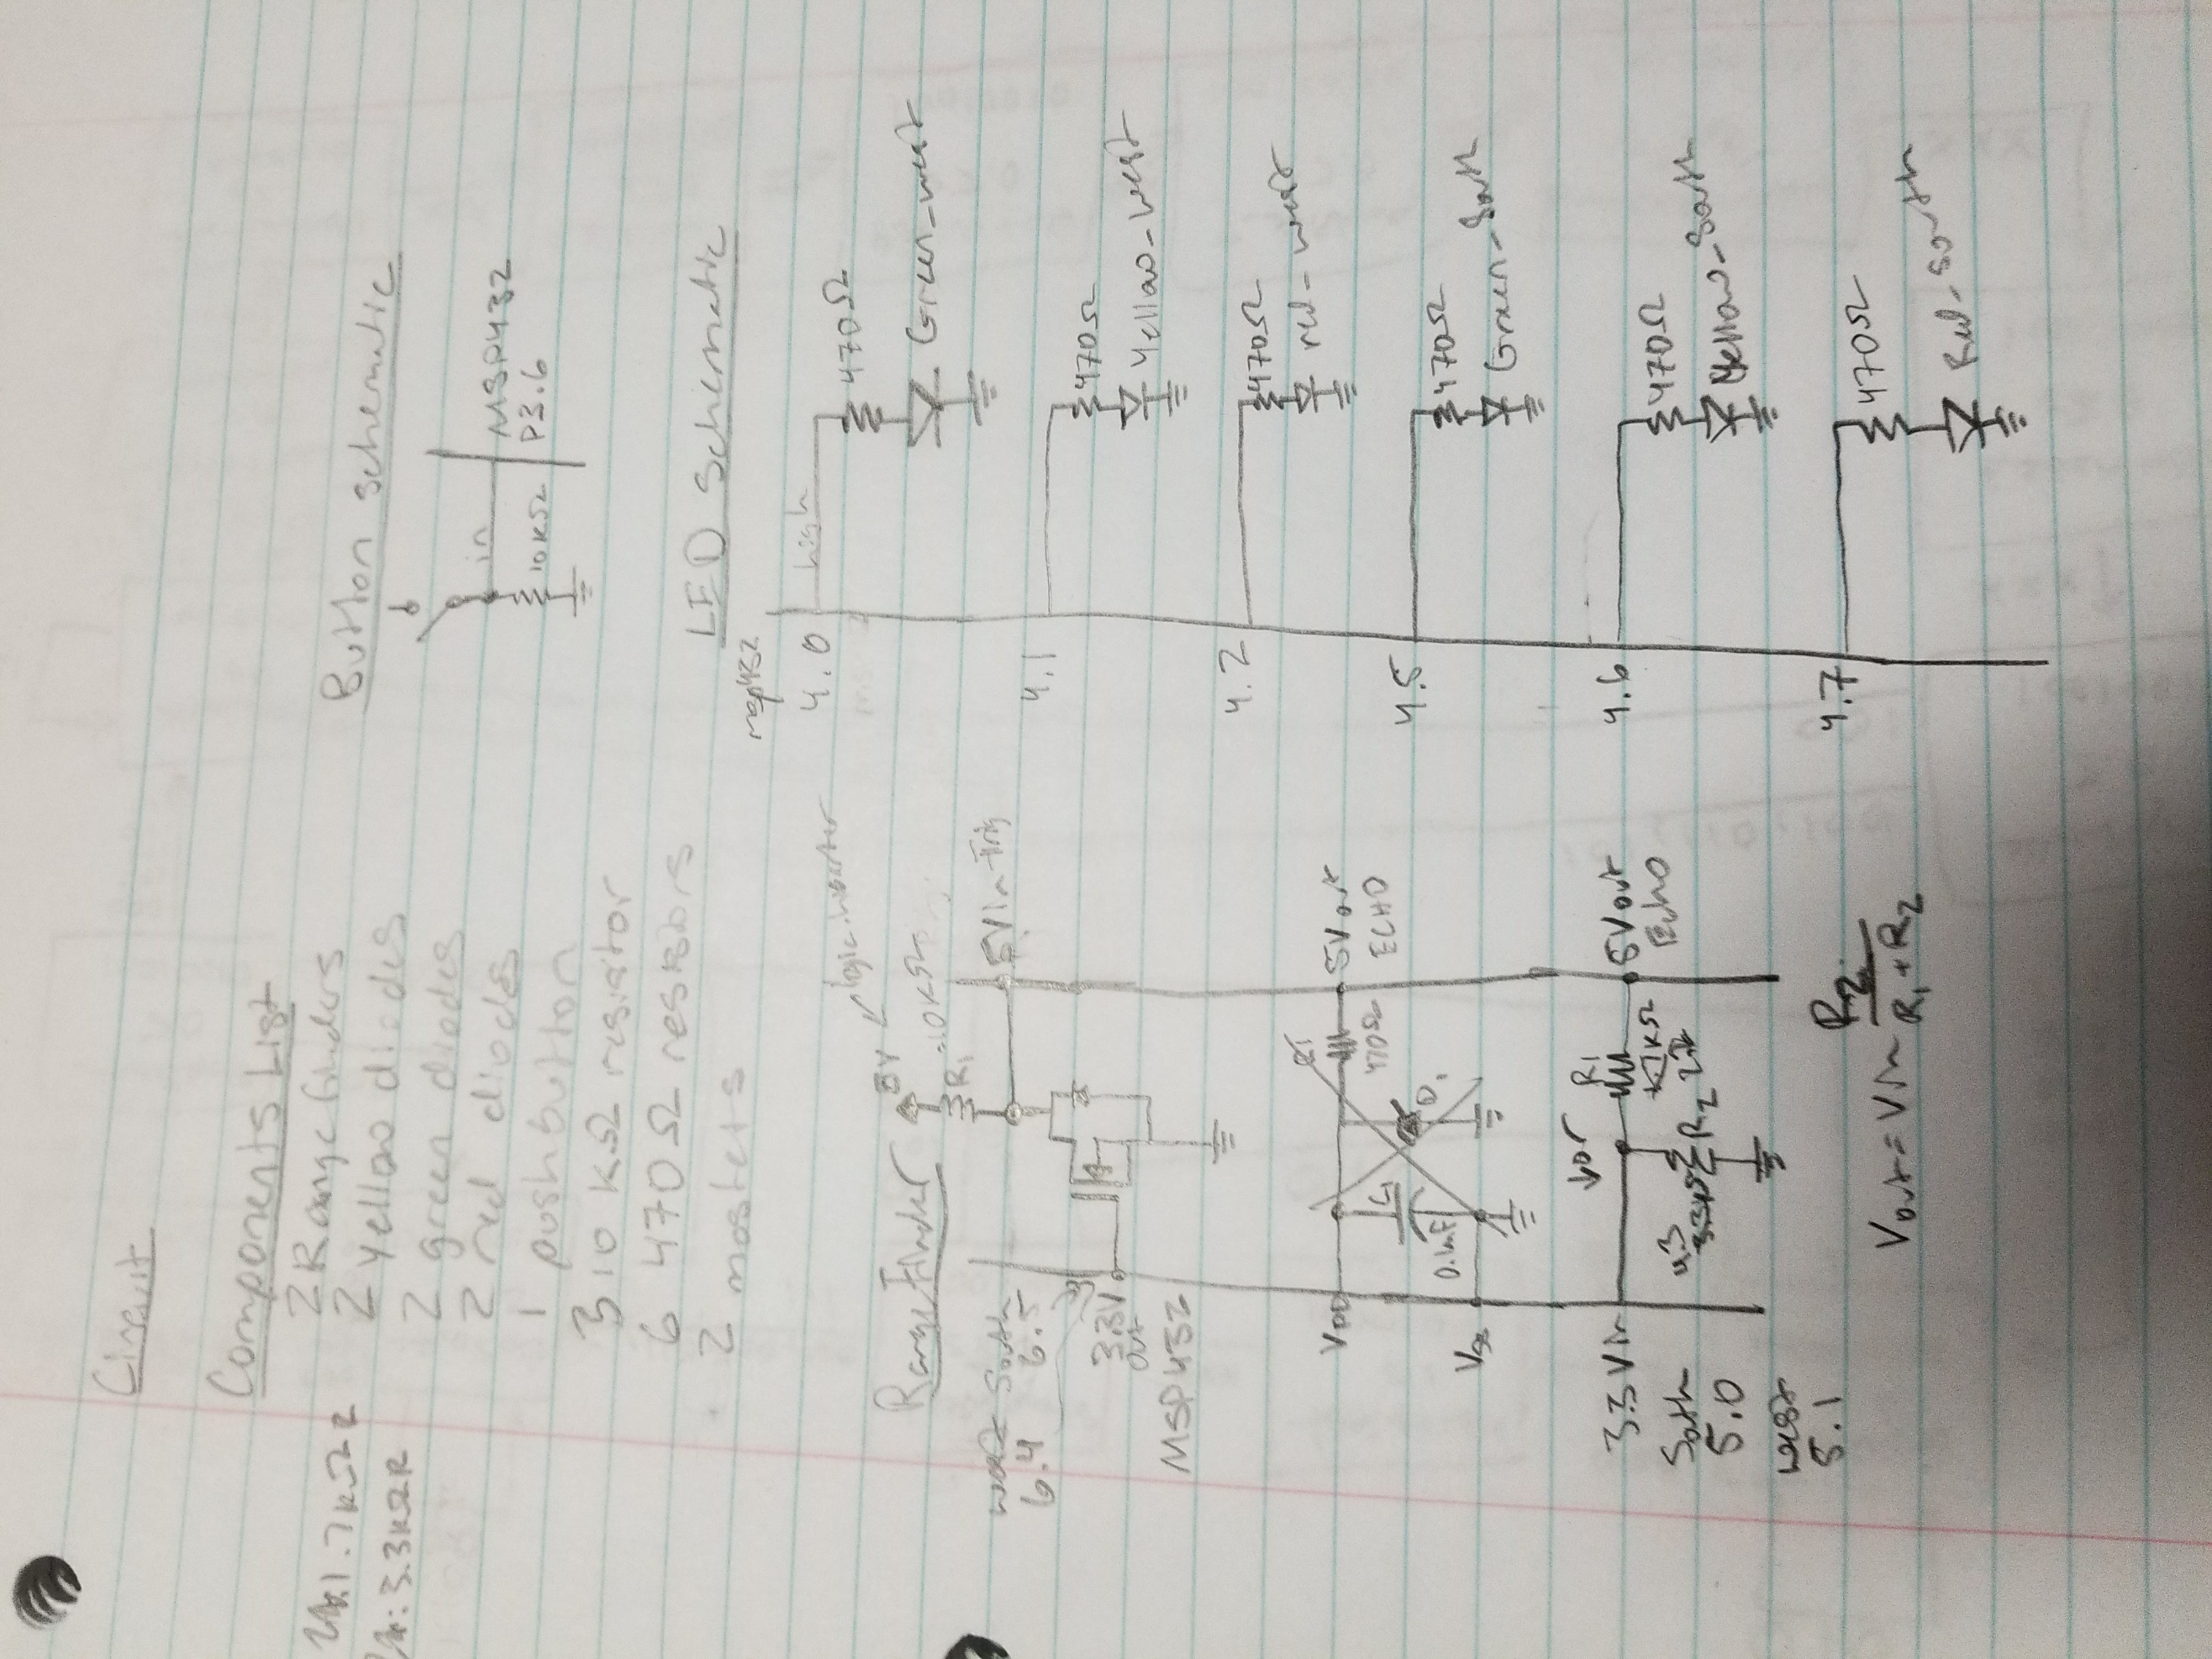 Circuit
Components List
2 Rangefinders
2 Yellow diodes
2 green diodes
2 red diodes
1 pushbutton
3 10 KΩ resisitor
6 470 Ω resistors
2 mosfets
1.7KΩ R
3.3KΩ R
Button schematic
in
10KΩ
MSP432
P3.6
LED Schematic
msp432
4.0
high
470Ω
Green_west
4.1
470Ω
Yellow_west
4.2
470Ω
red_west
4.5
470Ω
Green_South
4.6
470Ω
Yellow_South
4.7
470Ω
Red_South
Range Finder
5V
R1
10KΩ
5Vin Trig
west South
6.4 6.5
3.3V
out
MSP432
VDD
C1
0.1mF
R1
470Ω
D1
5Vout
ECHO
3.3 Vin
South
5.0
west
5.1
R1
5Vout
Echo
R2
Vout = Vin R2 / R1+R2